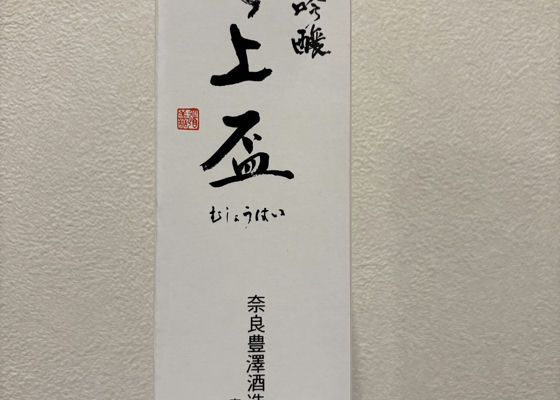 吟醸
上盃
むじょうはい
奈良豊澤酒造